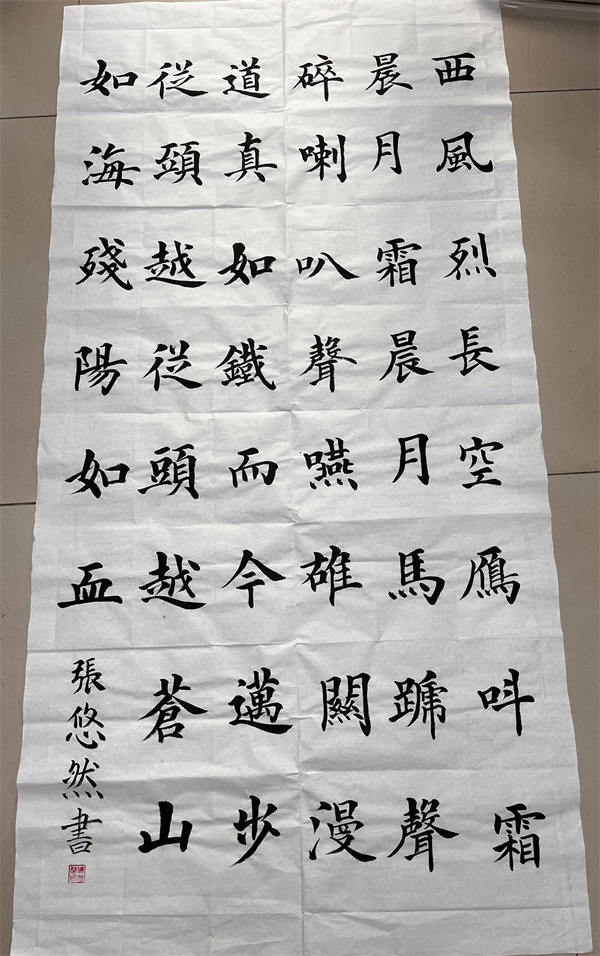 西風烈長空鴈叫霜
晨月霜晨月馬蹏聲
碎喇叭聲嚥雄關漫
道真如鐵而今邁步
從頭越從頭越蒼山
如海殘陽如血
張悠然書